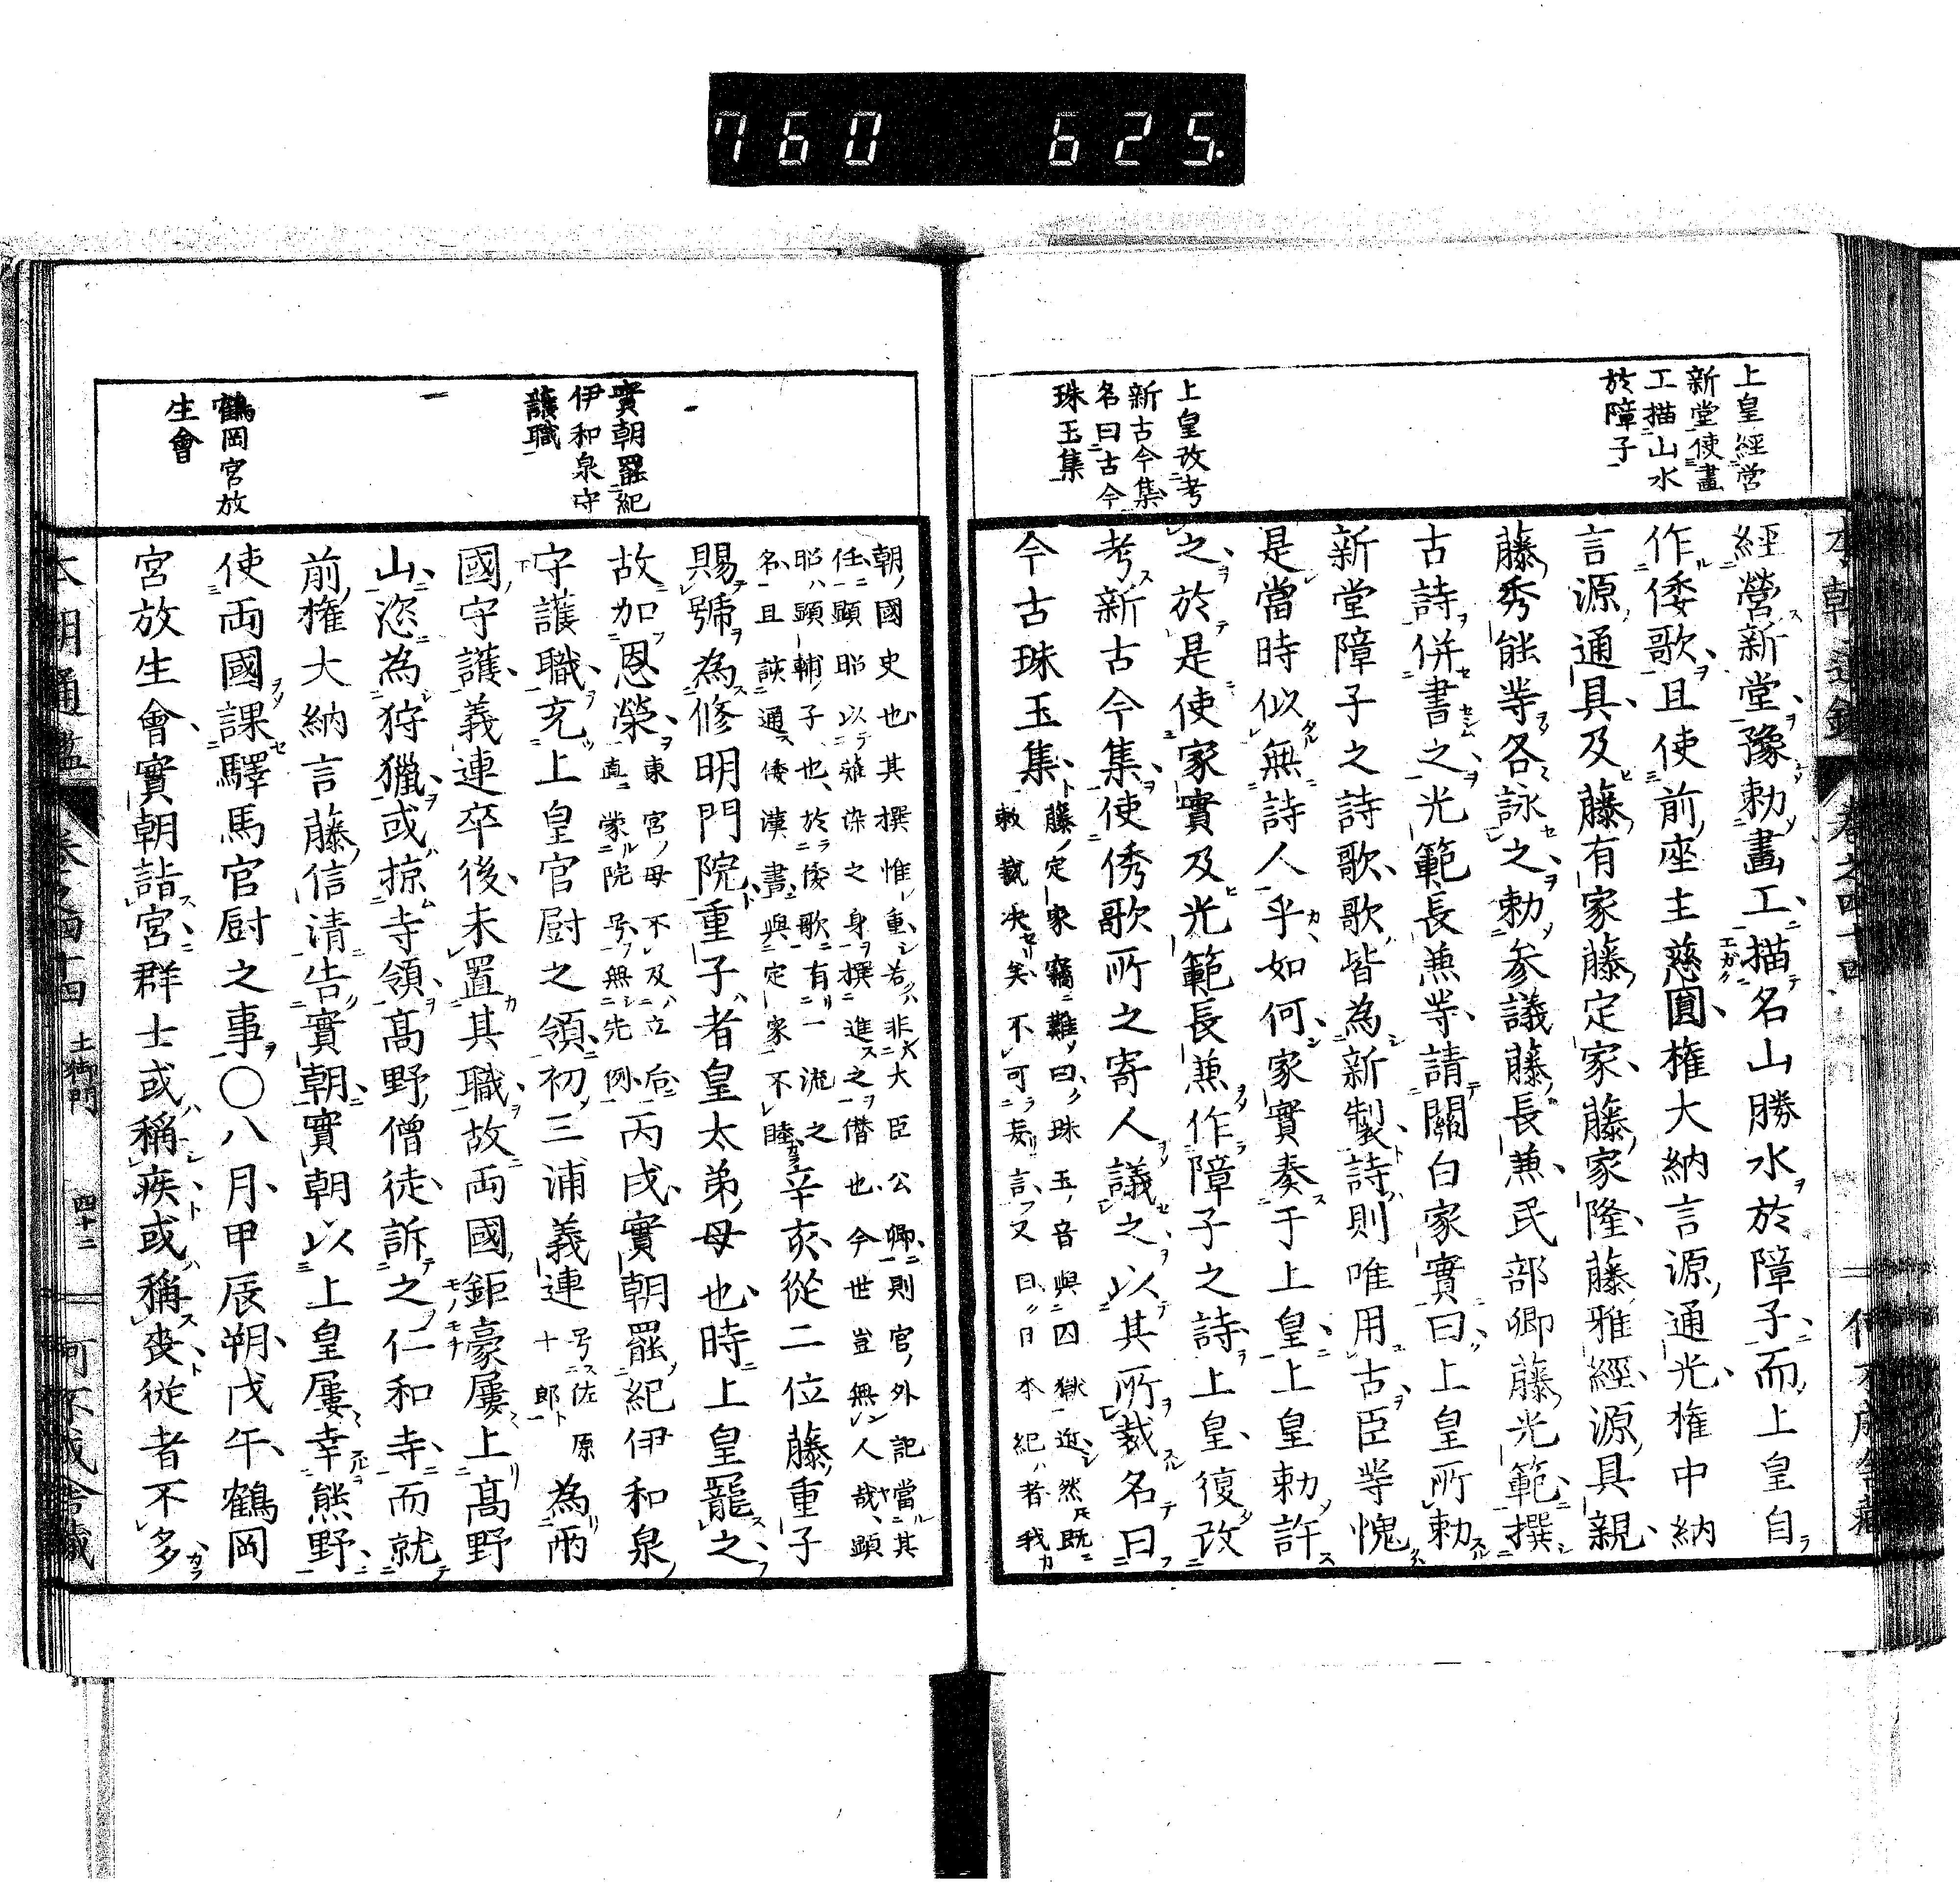 760 625.
上皇經營
新堂使畫
工描山水
於障子
上皇改考
新古今集
名曰古今
珠玉集
經營新堂豫勅畫工描名山勝水於障子而上皇自
作倭歌且使前座主慈圓權大納言源通光權中納
言源通具及藤有家藤定家藤家隆藤雅經源具親
藤秀能等各詠之勅參議藤長兼民部卿藤光範撰
古詩併書之光範長兼等請關白家實曰上皇所勅
新堂障子之詩歌歌皆為新製詩則唯用古臣等愧
是當時似無詩人乎如何家實奏于上皇上皇勅許
之於是使家實及光範長兼作障子之詩上皇復改
考新古今集使倭歌所之寄人議之以其所裁名曰
今古珠玉集
藤定家竊難曰珠玉音與囚獄近然既
敕裁决矣不可妄言又曰日本紀者我
實朝罷紀
伊和泉守
護職
鶴岡宮放
生會
朝國史也其撰惟重若非大臣公卿則官外記當其
任顯昭以薙染之身撰進之僭也今世豈無人哉顯
昭顯輔子也於倭歌有一流之
名且該通倭漢書與定家不睦
辛亥從二位藤重子
賜號為修明門院重子者皇太弟母也時上皇寵之
故加恩榮
東宮母不及立后
直蒙院号無先例
丙戌實朝罷紀伊和泉
守護職充上皇官厨之領初三浦義連
号佐原
十郎
為兩
國守護義連卒後未置其職故兩國鉅豪屢上高野
山恣為狩獵或掠寺領高野僧徒訴之仁和寺而就
前權大納言藤信清告實朝實朝以上皇屢幸熊野
使兩國課驛馬官厨之事〇八月甲辰朔戊午鶴岡
宮放生會實朝詣宮群士或稱疾或稱喪從者不多
本朝通鑑 卷之四十四 土御門 四十二